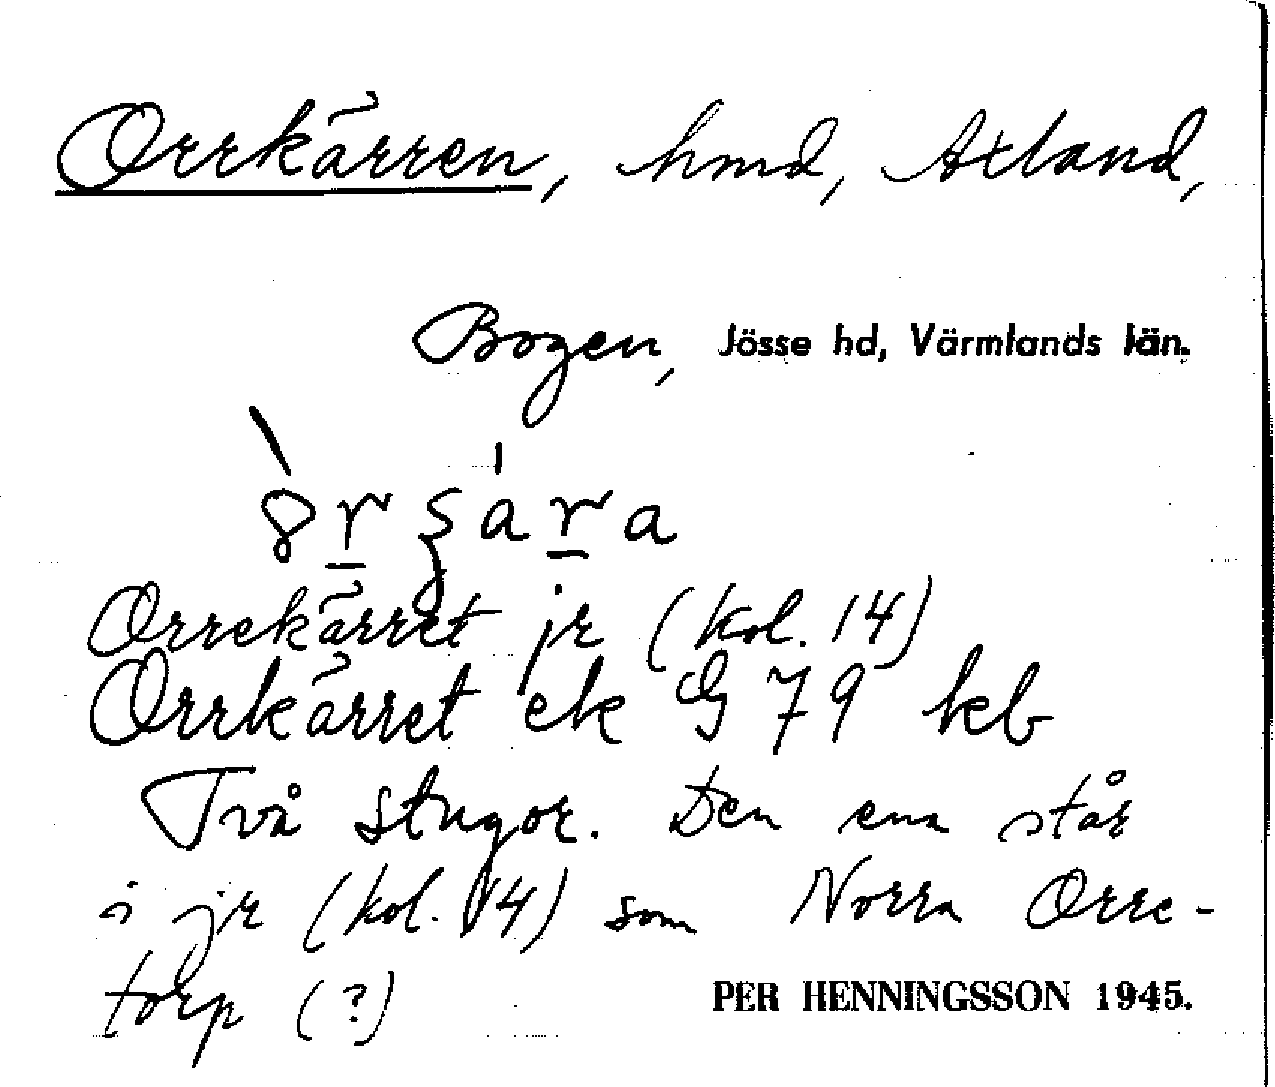 Orrkärren, hmd, Axland,
Bogen, Jösse hd, Värmlands län.
Orrekärret jr (kol. 14)
Orrkärret ek G 79 kb
Två stugor. Den ena står
i jr (kol. 14) som Norra Orre-
torp (?)
PER HENNINGSSON 1945.